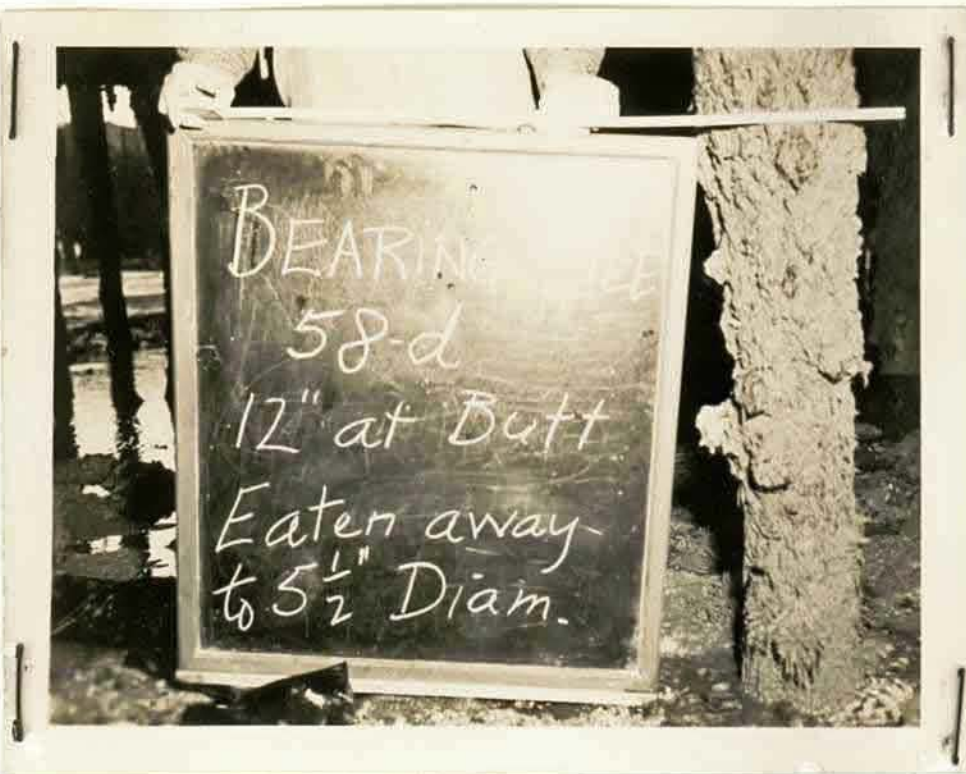 BEARING
58-d
12" at Butt
Eaten away
to 5 1/2" Diam.